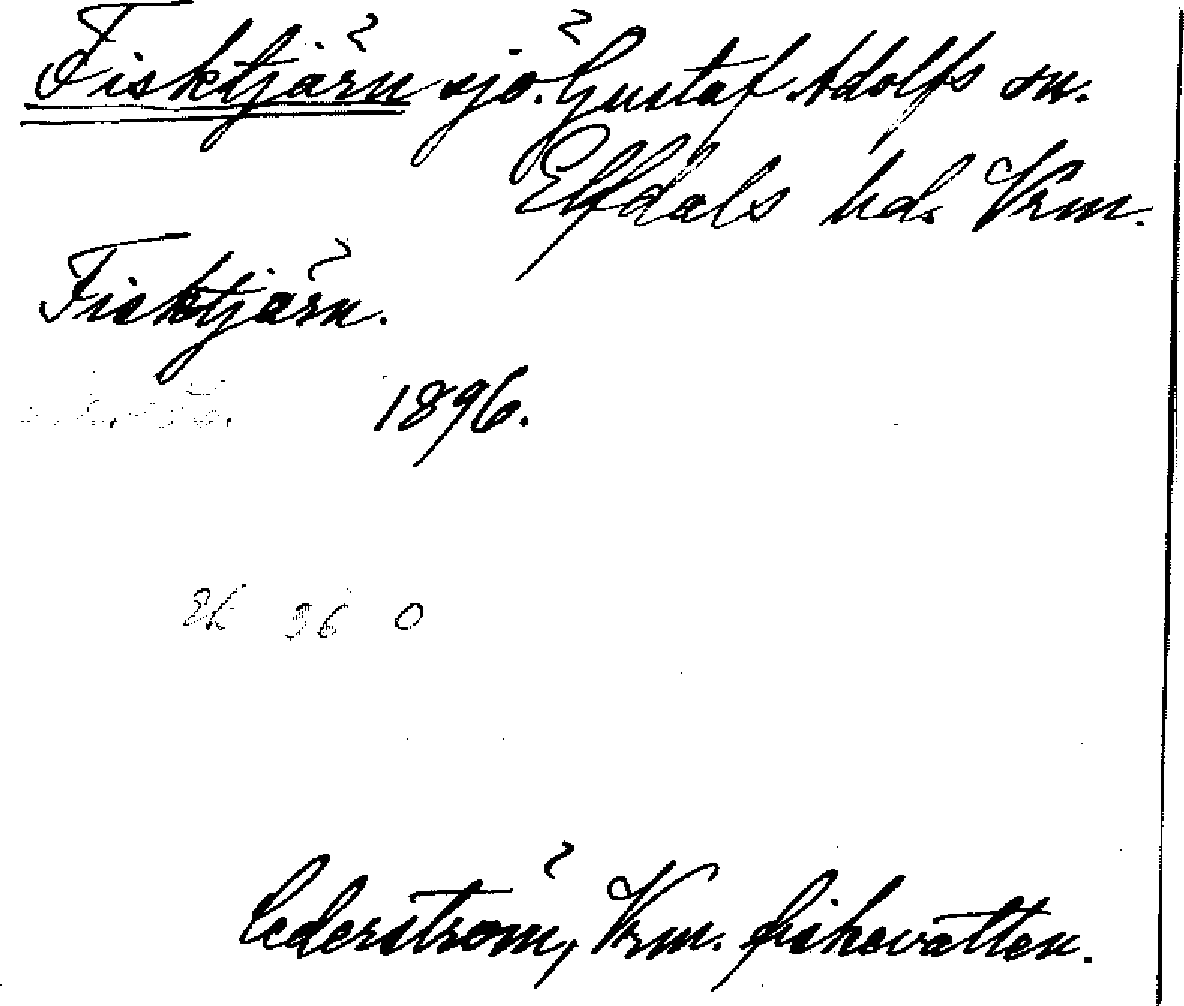 Fisktjärn sjö. Gustaf Adolfs sn.
Elfdals hd. Vrm.
Fisktjärn.
1896.
Ek 36 0
Cederström, Vrm. fiskevatten.